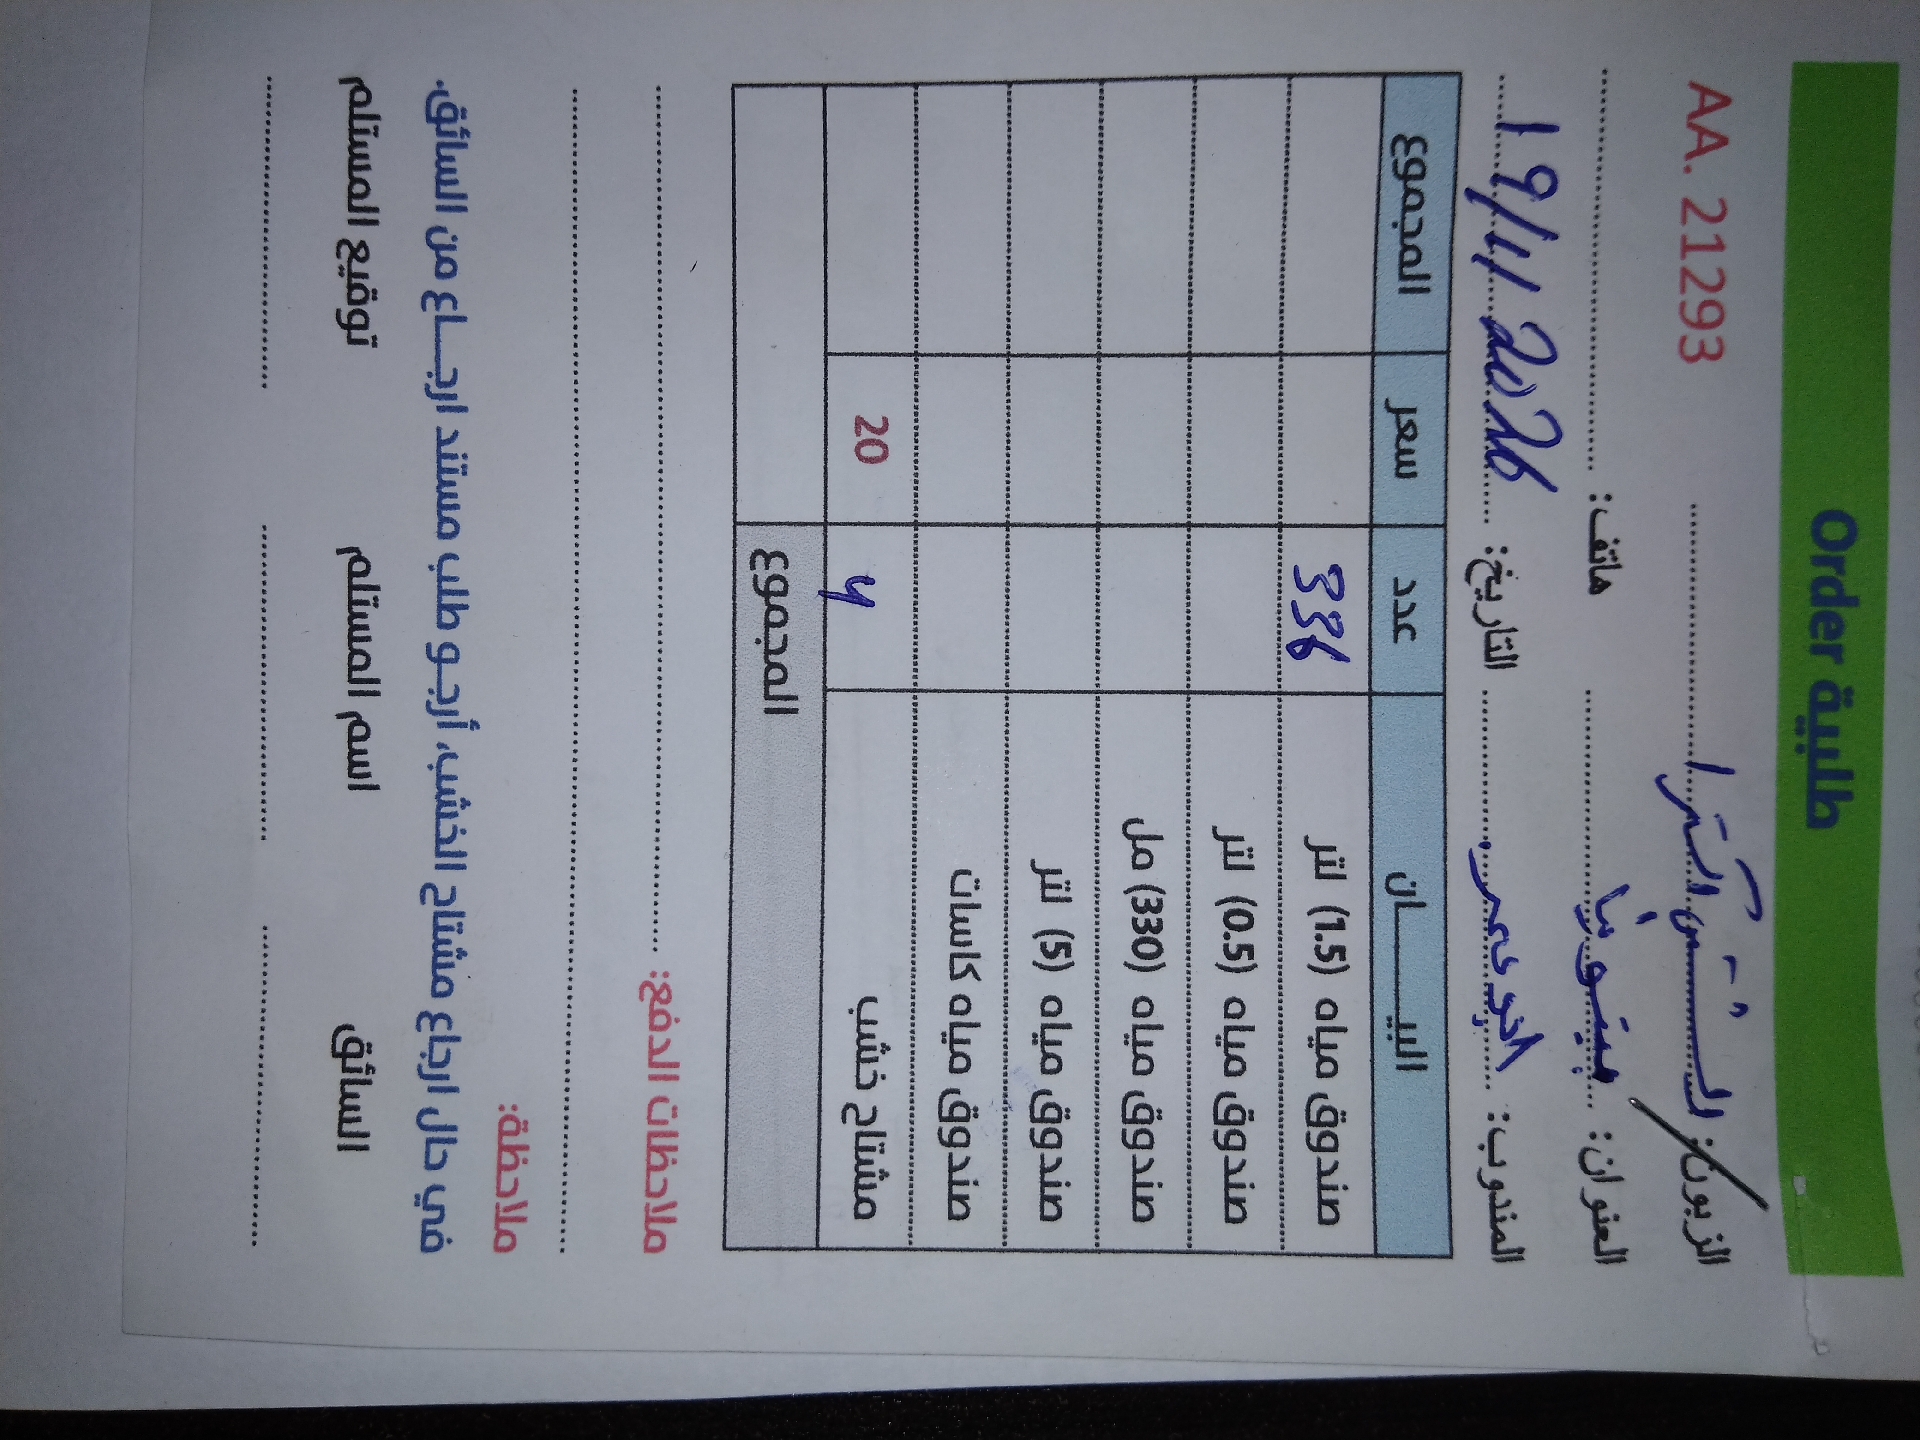 طلبية Order
AA. 21293 الزبون:
العنوان: بيتونيا هاتف:
المندوب: التاريخ: 19/1/2026
البيــــــان عدد سعر المجموع
صندوق مياه (1.5) لتر 336
صندوق مياه (0.5) لتر
صندوق مياه (330) مل
صندوق مياه (5) لتر
صندوق مياه كاسات
مشتاح خشب 4 20
المجموع
ملاحظات الدفع:
ملاحظة:
في حال ارجاع مشتاح الخشب، أرجـو طلب مستند ارجـــاع من السائق.
السائق اسم المستلم توقيع المستلم